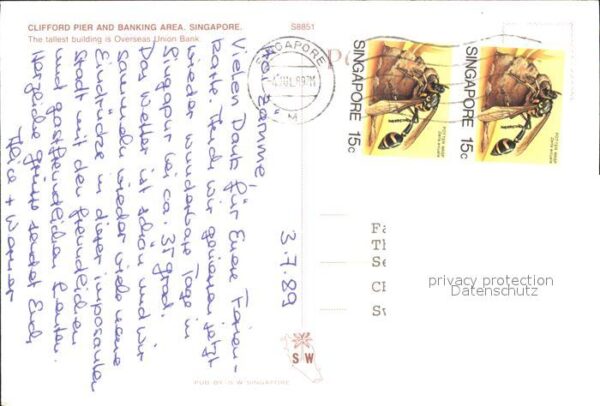 CLIFFORD PIER AND BANKING AREA. SINGAPORE.
The tallest building is Overseas Union Bank
S8851
Vielen Dank für Eure Ferien-
karte. Auch wir geniessen jetzt
wieder wunderbare Tage in
Singapur bei ca. 35 grad.
Das Wetter ist schön und wir
sammeln wieder viele neue
Eindrücke in dieser imposanten
Stadt mit den freundlichen
und gastfreundlichen Leuten.
Herzliche Grüsse sendet Euch
+ Werner
3.7.89
SINGAPORE
SINGAPORE 15c
POTTER WASP
SINGAPORE 15c
POTTER WASP
Fa
Th
Se
CH
Sv
privacy protection
Datenschutz
S W
PUB BY: S.W SINGAPORE